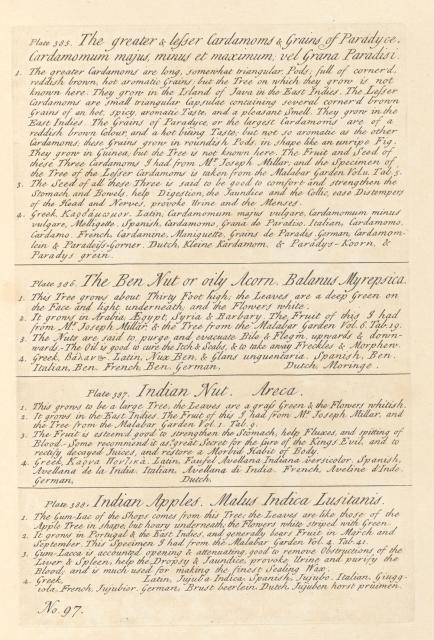 Plate 385. The greater & lesser Cardamoms & Grains of Paradyce.
Cardamomum majus, minus et maximum, vel Grana Paradisi.
1. The greater Cardamoms are long, somewhat triangular, Pods; full of corner'd,
reddish brown, hot aromatic Grains; but the Tree on which they grow is not
known here. They grow in the Island of Java in the East Indies. The Lesser
Cardamoms are small triangular Capsulae containing several corner'd brown
Grains of an hot, spicy, aromatic Taste, and a pleasant smell. They grow in the
East Indies. The Grains of Paradyce, or the largest Cardamoms are of a
reddish brown Colour, and a hot biting Taste; but not so aromatic as the other
Cardamoms; these Grains grow in roundish Pods, in shape like an unripe Fig.
They grow in Guinea, but the Tree is not known here. The Fruit and Seed of
these Three Cardamoms I had from Mr. Joseph Millar; and the Specimen of
the Tree of the Lesser Cardamoms is taken from the Malabar Garden Vol. 11. Tab. 5.
3. The Seed of all these Three is said to be good to comfort and strengthen the
Stomach and Bowels, help Digestion, the Jaundice and the Collic, ease Distempers
of the Head and Nerves, provoke Urine and the Menses.
4. Greek, Latin, Cardamomum majus vulgare, Cardamomum minus
vulgare, Mellegette, Spanish, Cardamomo, Grana de Paradiso. Italian, Cardamomo,
Cardamo. French, Cardamine, Maniguette, Grains de Paradis. German, Cardamom-
lein & Paradeiss-Gorner. Dutch, Kleine Kardamom, & Paradys-Koorn, &
Paradys grein.
Plate 386. The Ben Nut or oily Acorn. Balanus Myrepsica.
1. This Tree grows about Thirty Foot high; the Leaves are a deep Green on
the Face and light underneath, and the Flowers white.
2. It grows in Arabia, Ægypt, Syria & Barbary. The Fruit of this I had
from Mr. Joseph Millar, & the Tree from the Malabar Garden Vol. 6. Tab. 19.
3. The Nuts are said to purge and evacuate Bile & Flegm, upwards & down-
wards. The Oil is good to cure the Itch & Scabs, & to take away Freckles & Morphew.
4. Greek, Latin, Nux Ben, & Glans unguentaria. Spanish, Ben.
Italian, Ben. French, Ben. German, Dutch, Moringe.
Plate 387. Indian Nut. Areca.
1. This grows to be a large Tree, the Leaves are a grass Green & the Flowers whitish.
2. It grows in the East Indies. The Fruit of this I had from Mr. Joseph Millar, and
the Tree from the Malabar Garden Vol. 1. Tab. 9.
3. The Fruit is esteem'd good to strengthen the Stomach, help Fluxes, and spitting of
Blood. Some recommend it as great Secret for the Cure of the Kings Evil, and to
rectify decayed Juices, and restore a Morbid Habit of Body.
4. Greek, Latin, Faufel, Avellana Indiana versicolor. Spanish,
Avellana de la India. Italian, Avellana di India. French, Aveline d'Inde.
German, Dutch.
Plate 388. Indian Apples. Malus Indica Lusitanis.
1. The Gum-Lac of the Shops comes from this Tree; the Leaves are like those of the
Apple Tree in shape, but hoary underneath, the Flowers white striped with Green.
2. It grows in Portugal & the East Indies, and generally bears Fruit in March and
September. This Specimen I had from the Malabar Garden Vol. 4. Tab. 41.
3. Gum-Lacca is accounted opening & attenuating, good to remove Obstructions of the
Liver & Spleen, help the Dropsy & Jaundice, provoke Urine and purify the
Blood; and is much used for making the finest Sealing Wax.
4. Greek, Latin, Jujuba Indica. Spanish, Jujubo. Italian, Giugg-
iola. French, Jujubier. German, Brust beerlein. Dutch, Jujuben horst pruimen.
No. 97.